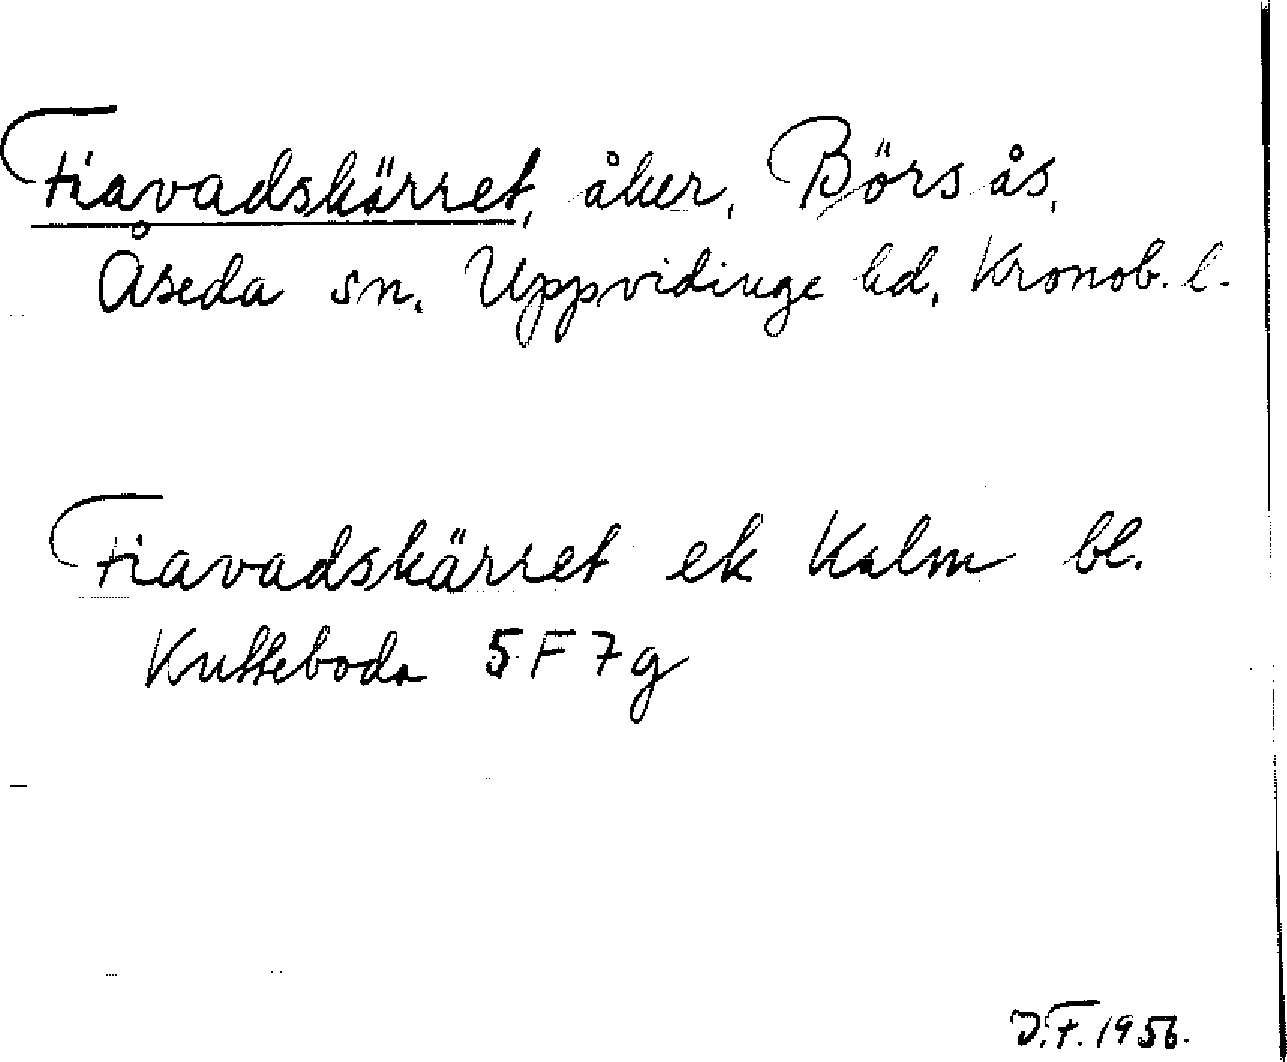 Fiavadskärret, åker, Börsås,
Åseda sn. Uppvidinge hd, Kronob. l.
Fiavadskärret ek Kalm bl.
Kutteboda 5F7g
J.F. 1956.